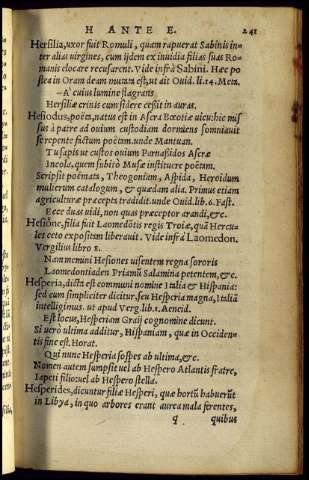 H ANTE E. 241
Hersilia, uxor fuit Romuli, quam rapuerat Sabinis in-
ter alias virgines, cum ijdem ex invidia filias suas Ro-
manis elocare recusarent. Vide infrà Sabini. Hæc po
stea in Oram deam mutata est, ut ait Ovid. li. 14. Meta.
–A' cuius lumine flagrans
Hersiliæ crinis cum sidere cessit in auras.
Hesiodus, poëta, natus est in Ascra Bœotiæ vico: hic mis
sus à patre ad ovium custodiam dormiens somniavit
se repente fictum poëtam. unde Mantuan.
Tu sapis ut custos ovium Parnasidos Ascræ
Incola, quem subitò Musæ instituere poëtam.
Scripsit poëmata, Theogoniam, Aspida, Heroidum
mulierum catalogum, & quædam alia. Primus etiam
agriculturæ præcepta tradidit. unde Ovid. lib. 6. Fast.
Ecce duas uidi, non quas præceptor arandi, &c.
Hesione, filia fuit Laomedōtis regis Troiæ, quā Hercu-
les ceto expositam liberauit. Vide infrà Laomedon.
Vergilius libro 8.
Nam memini Hesiones uisentem regna sororis
Laomedontiaden Priamū Salamina petentem, &c.
Hesperia, dicta est communi nomine Italia & Hispania:
sed cum simpliciter dicitur, seu Hesperia magna, Italiā
intelligimus. ut apud Verg. lib. 1. Aeneid.
Est locus, Hesperiam Graij cognomine dicunt.
Si uerò ultima additur, Hispaniam, quæ in Occiden-
tis fine est. Horat.
Qui nunc Hesperia sospes ab ultima, &c.
Nomen autem sumpsit uel ab Hespero Atlantis fratre,
Iapeti filio: uel ab Hespero stella.
Hesperides, dicuntur filiæ Hesperi, quæ hortū habuerūt
in Libya, in quo arbores erant aurea mala ferentes,
q quibus